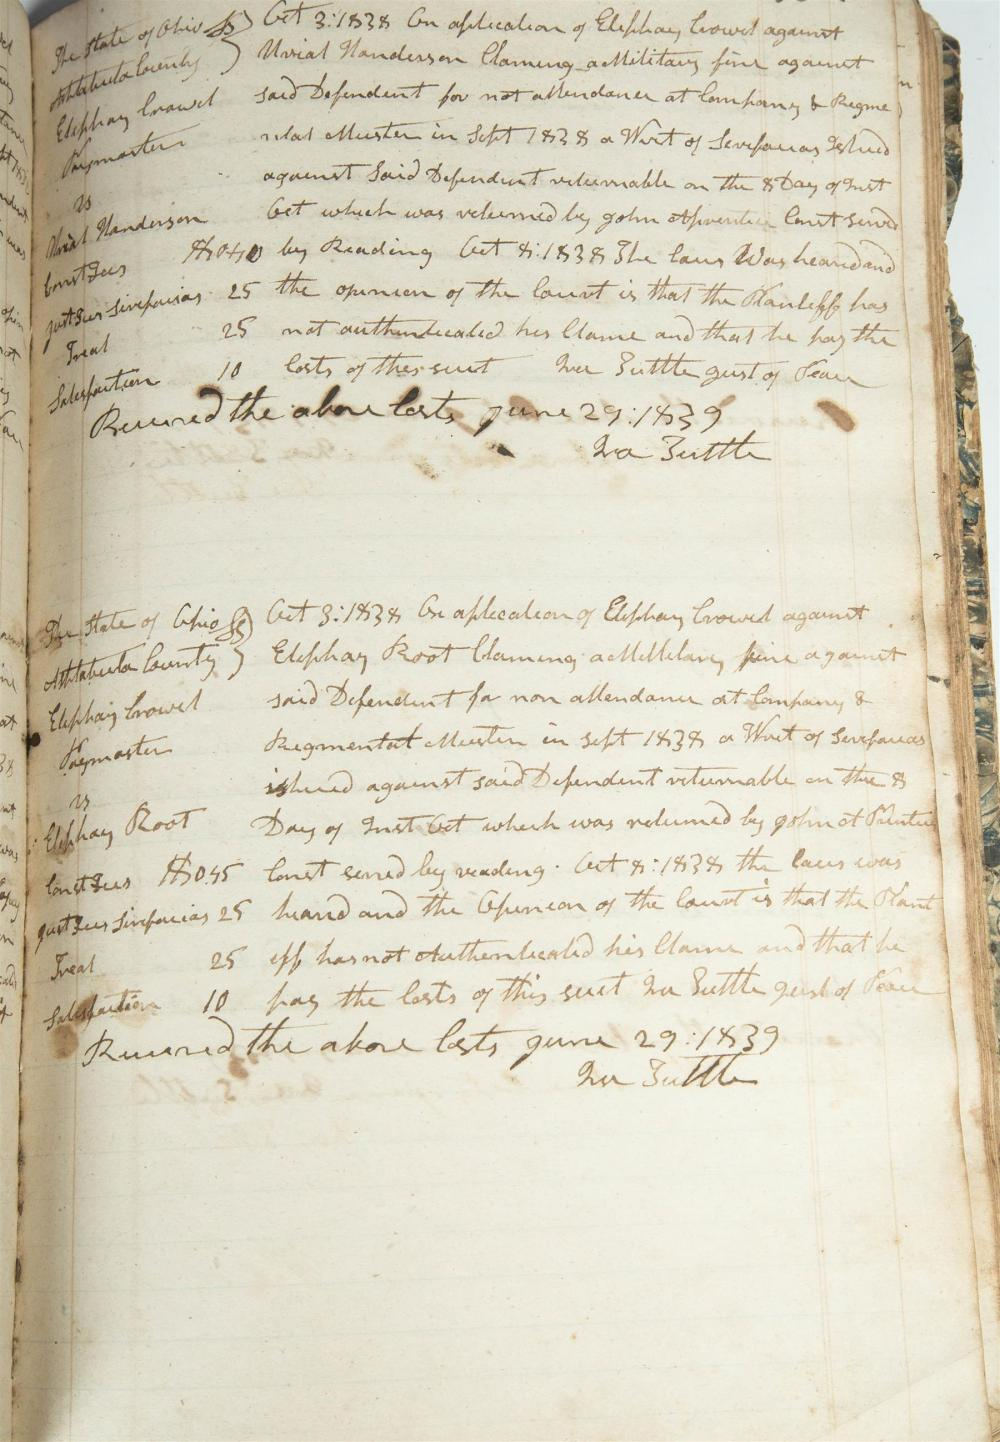 The State of Ohio ss
Ashtabula County
Eliphaz Crowel
Paymaster
vs
Uriah Handerson
Const Fees $0.40
Just Fees Sirefacias 25
Treal 25
Satisfaction 10
Oct 3:1838 On aplication of Eliphaz Crowel against
Uriah Handerson Claming a Military fine against
said Defendent for not attendance at Company & Regme
ntal Muster in Sept 1838 a Writ of Serefacias Ishued
against Said Defendent returnable on the 8 Day of Inst
Oct which was returned by John Const served
by Reading Oct 8:1838 The Caus Was heard and
the opinion of the Court is that the Plantiff has
not authenticated his Clame and that he pay the
Costs of this suit Ira Tuttle Just of Peace
Received the above Costs June 29:1839
Ira Tuttle
The State of Ohio ss
Ashtabula County
Eliphaz Crowel
Paymaster
vs
Eliphaz Root
Const Fees $0.45
Just Fees Sirefacias 25
Treal 25
Satisfaction 10
Oct 3:1838 On aplication of Eliphaz Crowel against
Eliphaz Root Claming a Millitary fine against
said Defendent for non attendance at Company &
Regmental Muster in Sept 1838 a Writ of Serefacias
ishued against said Defendent returnable on the 8
Day of Inst Oct which was returned by John
Const served by reading Oct 8:1838 the Caus was
heard and the Opinion of the Court is that the Plant
iff has not Authenticated his Clame and that he
pay the Costs of this suit Ira Tuttle Just of Peace
Received the above Costs June 29:1839
Ira Tuttle